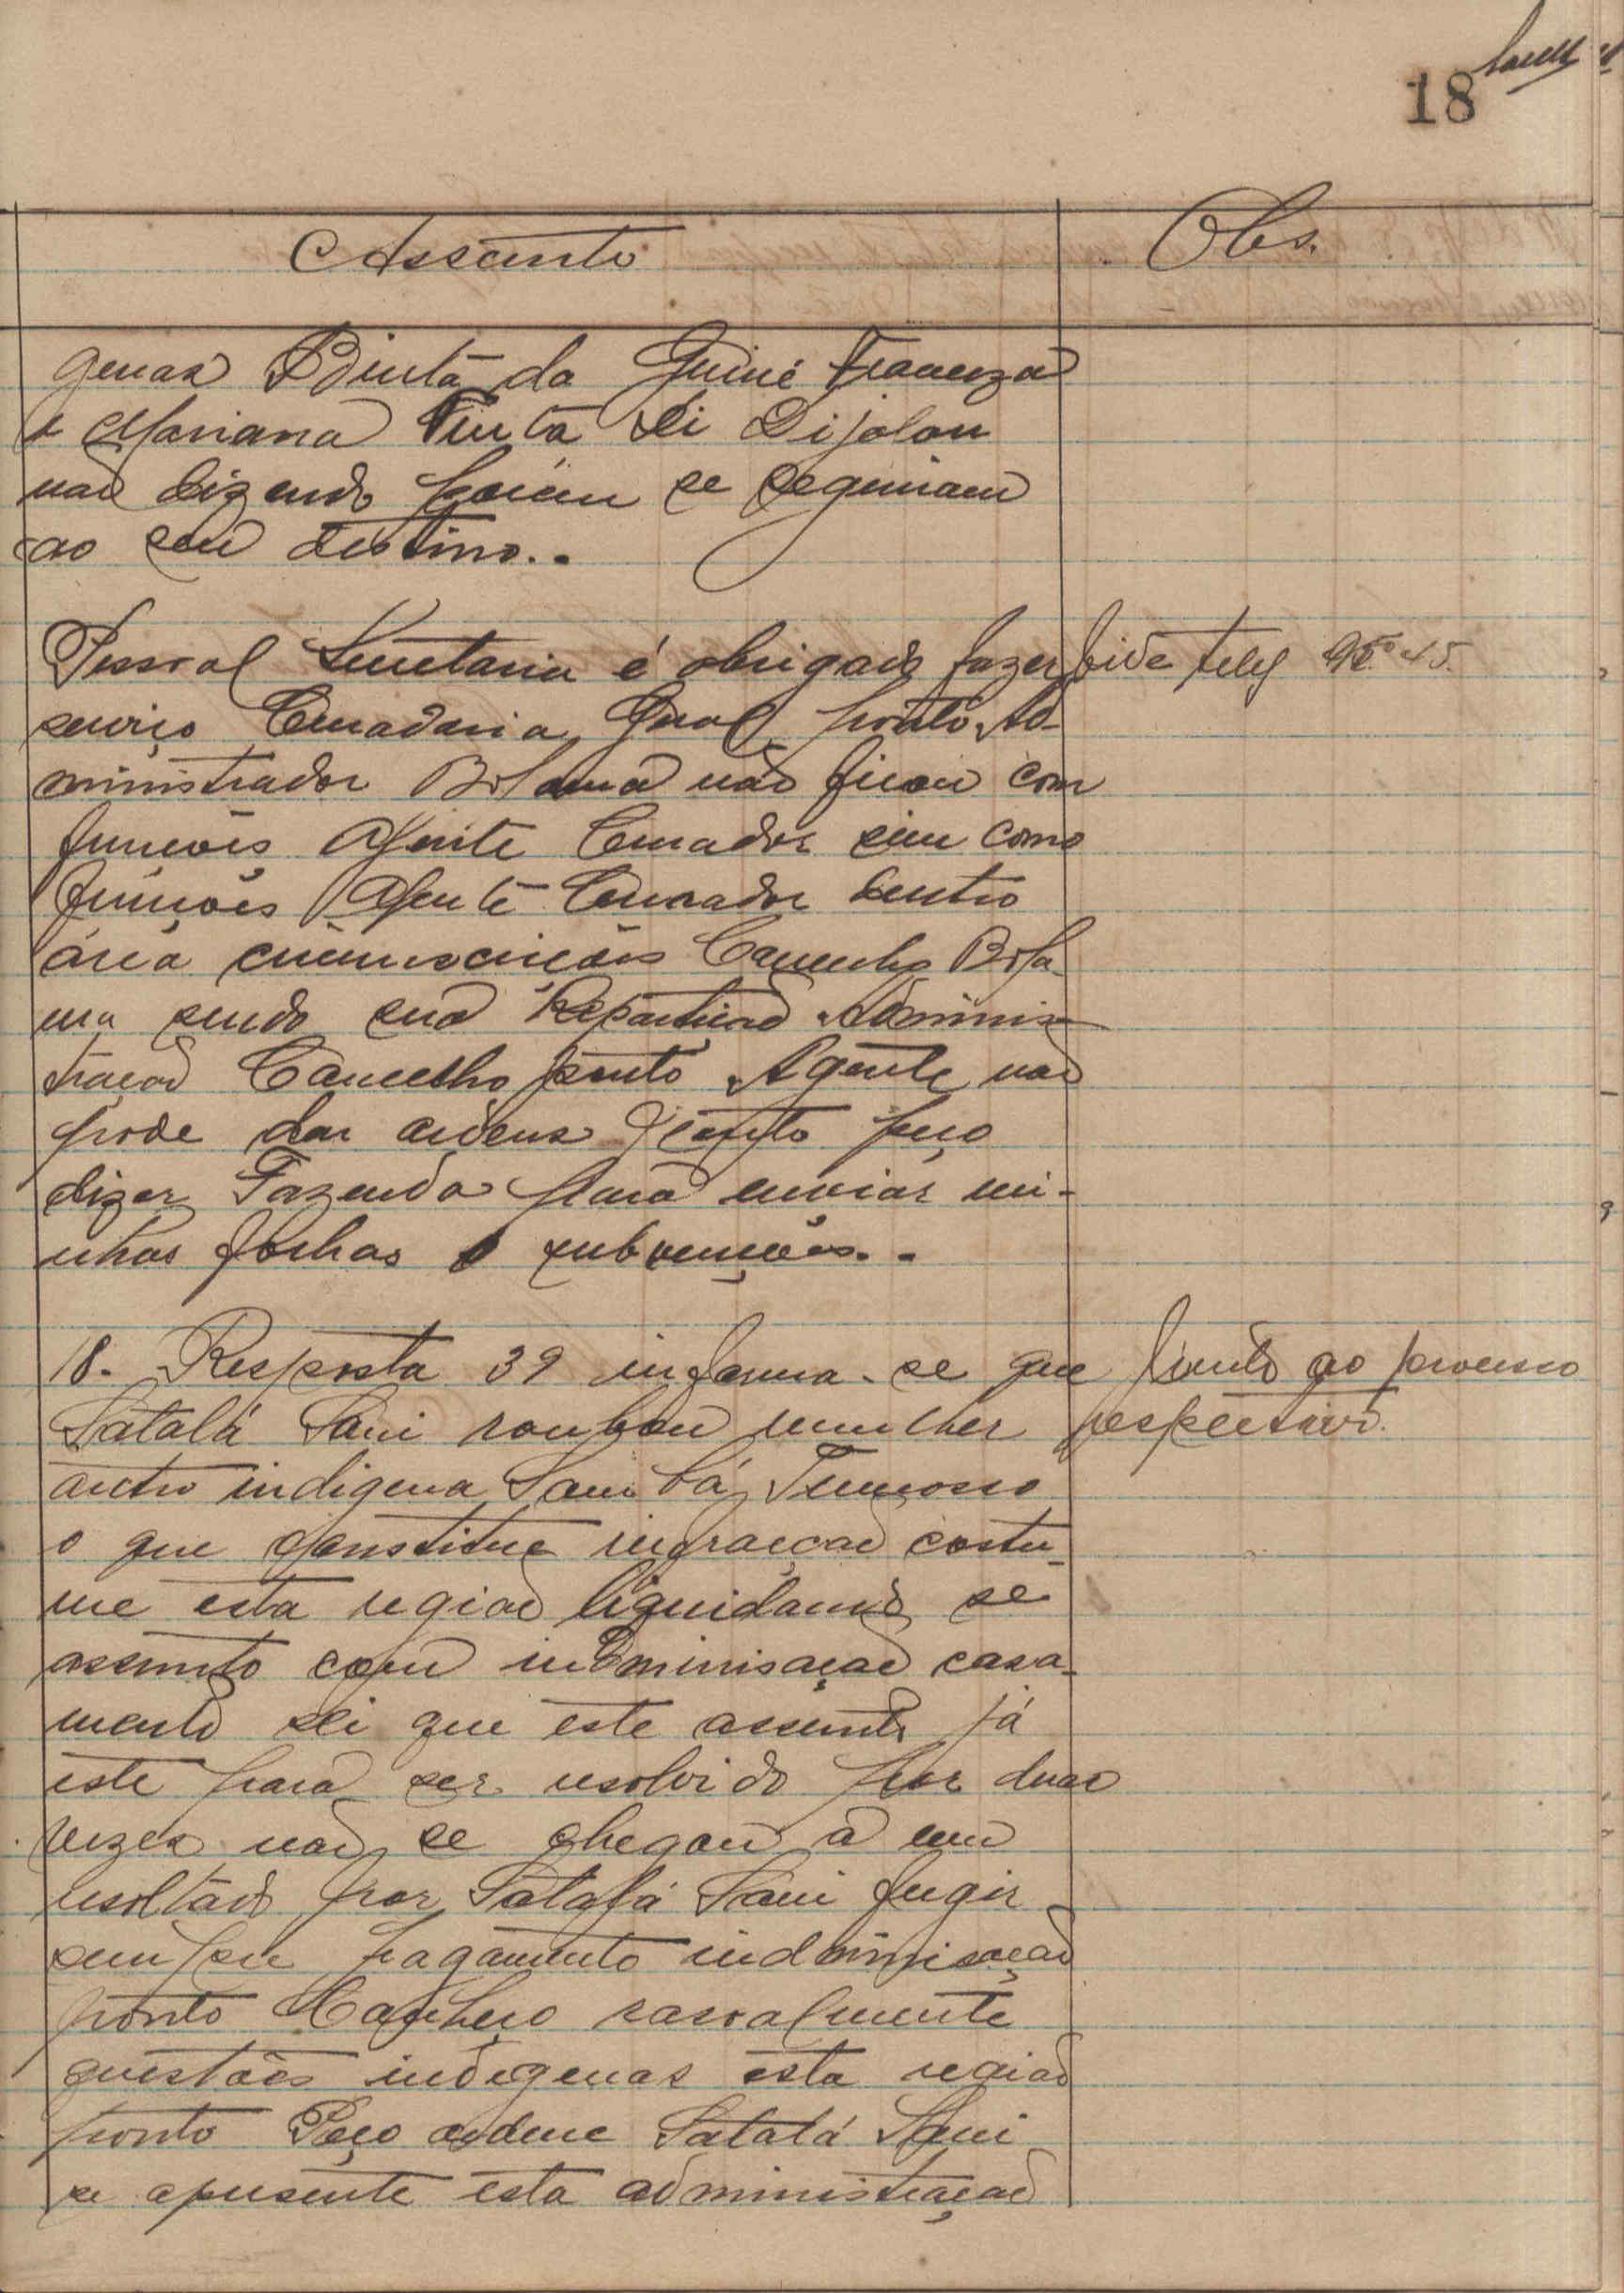 18
Assunto
Obs.
genas Bintá da Guiné Franceza
e Mariana Vintá di Dijolou
não dizendo porem se seguiram
ao seu destino..
Pessoal Secretaria é obrigado fazer
vide teleg 45.
serviço Curadoria Geral ponto Ad-
ministrador Bolama não ficou com
funcoes Agente Curador sim como
funções Agente Curador dentro
área circunscrições Concelho Bola-
ma sendo sua Repartição Adminis-
tração Concelho ponto Agente não
pode dar ordens ponto peço
dizer Fazenda para enviar mi-
nhas folhas e subvenções..
18. Resposta 39 informa-se que
Junto ao processo
Satalá Sani roubou mulher
respectivo.
outro indigena Sambá
o que constitue infracção costu-
me esta região liquidando se
assunto com indminisação casa-
mento sei que este assunto já
este para ser resolvido por duas
vezes não se chegou a um
resoltado por Satalá Sani fugir
sempre pagamento indminisação
ponto Conheço
questões indigenas esta região
ponto Peço ordene Satalá Sani
se apresente esta administração